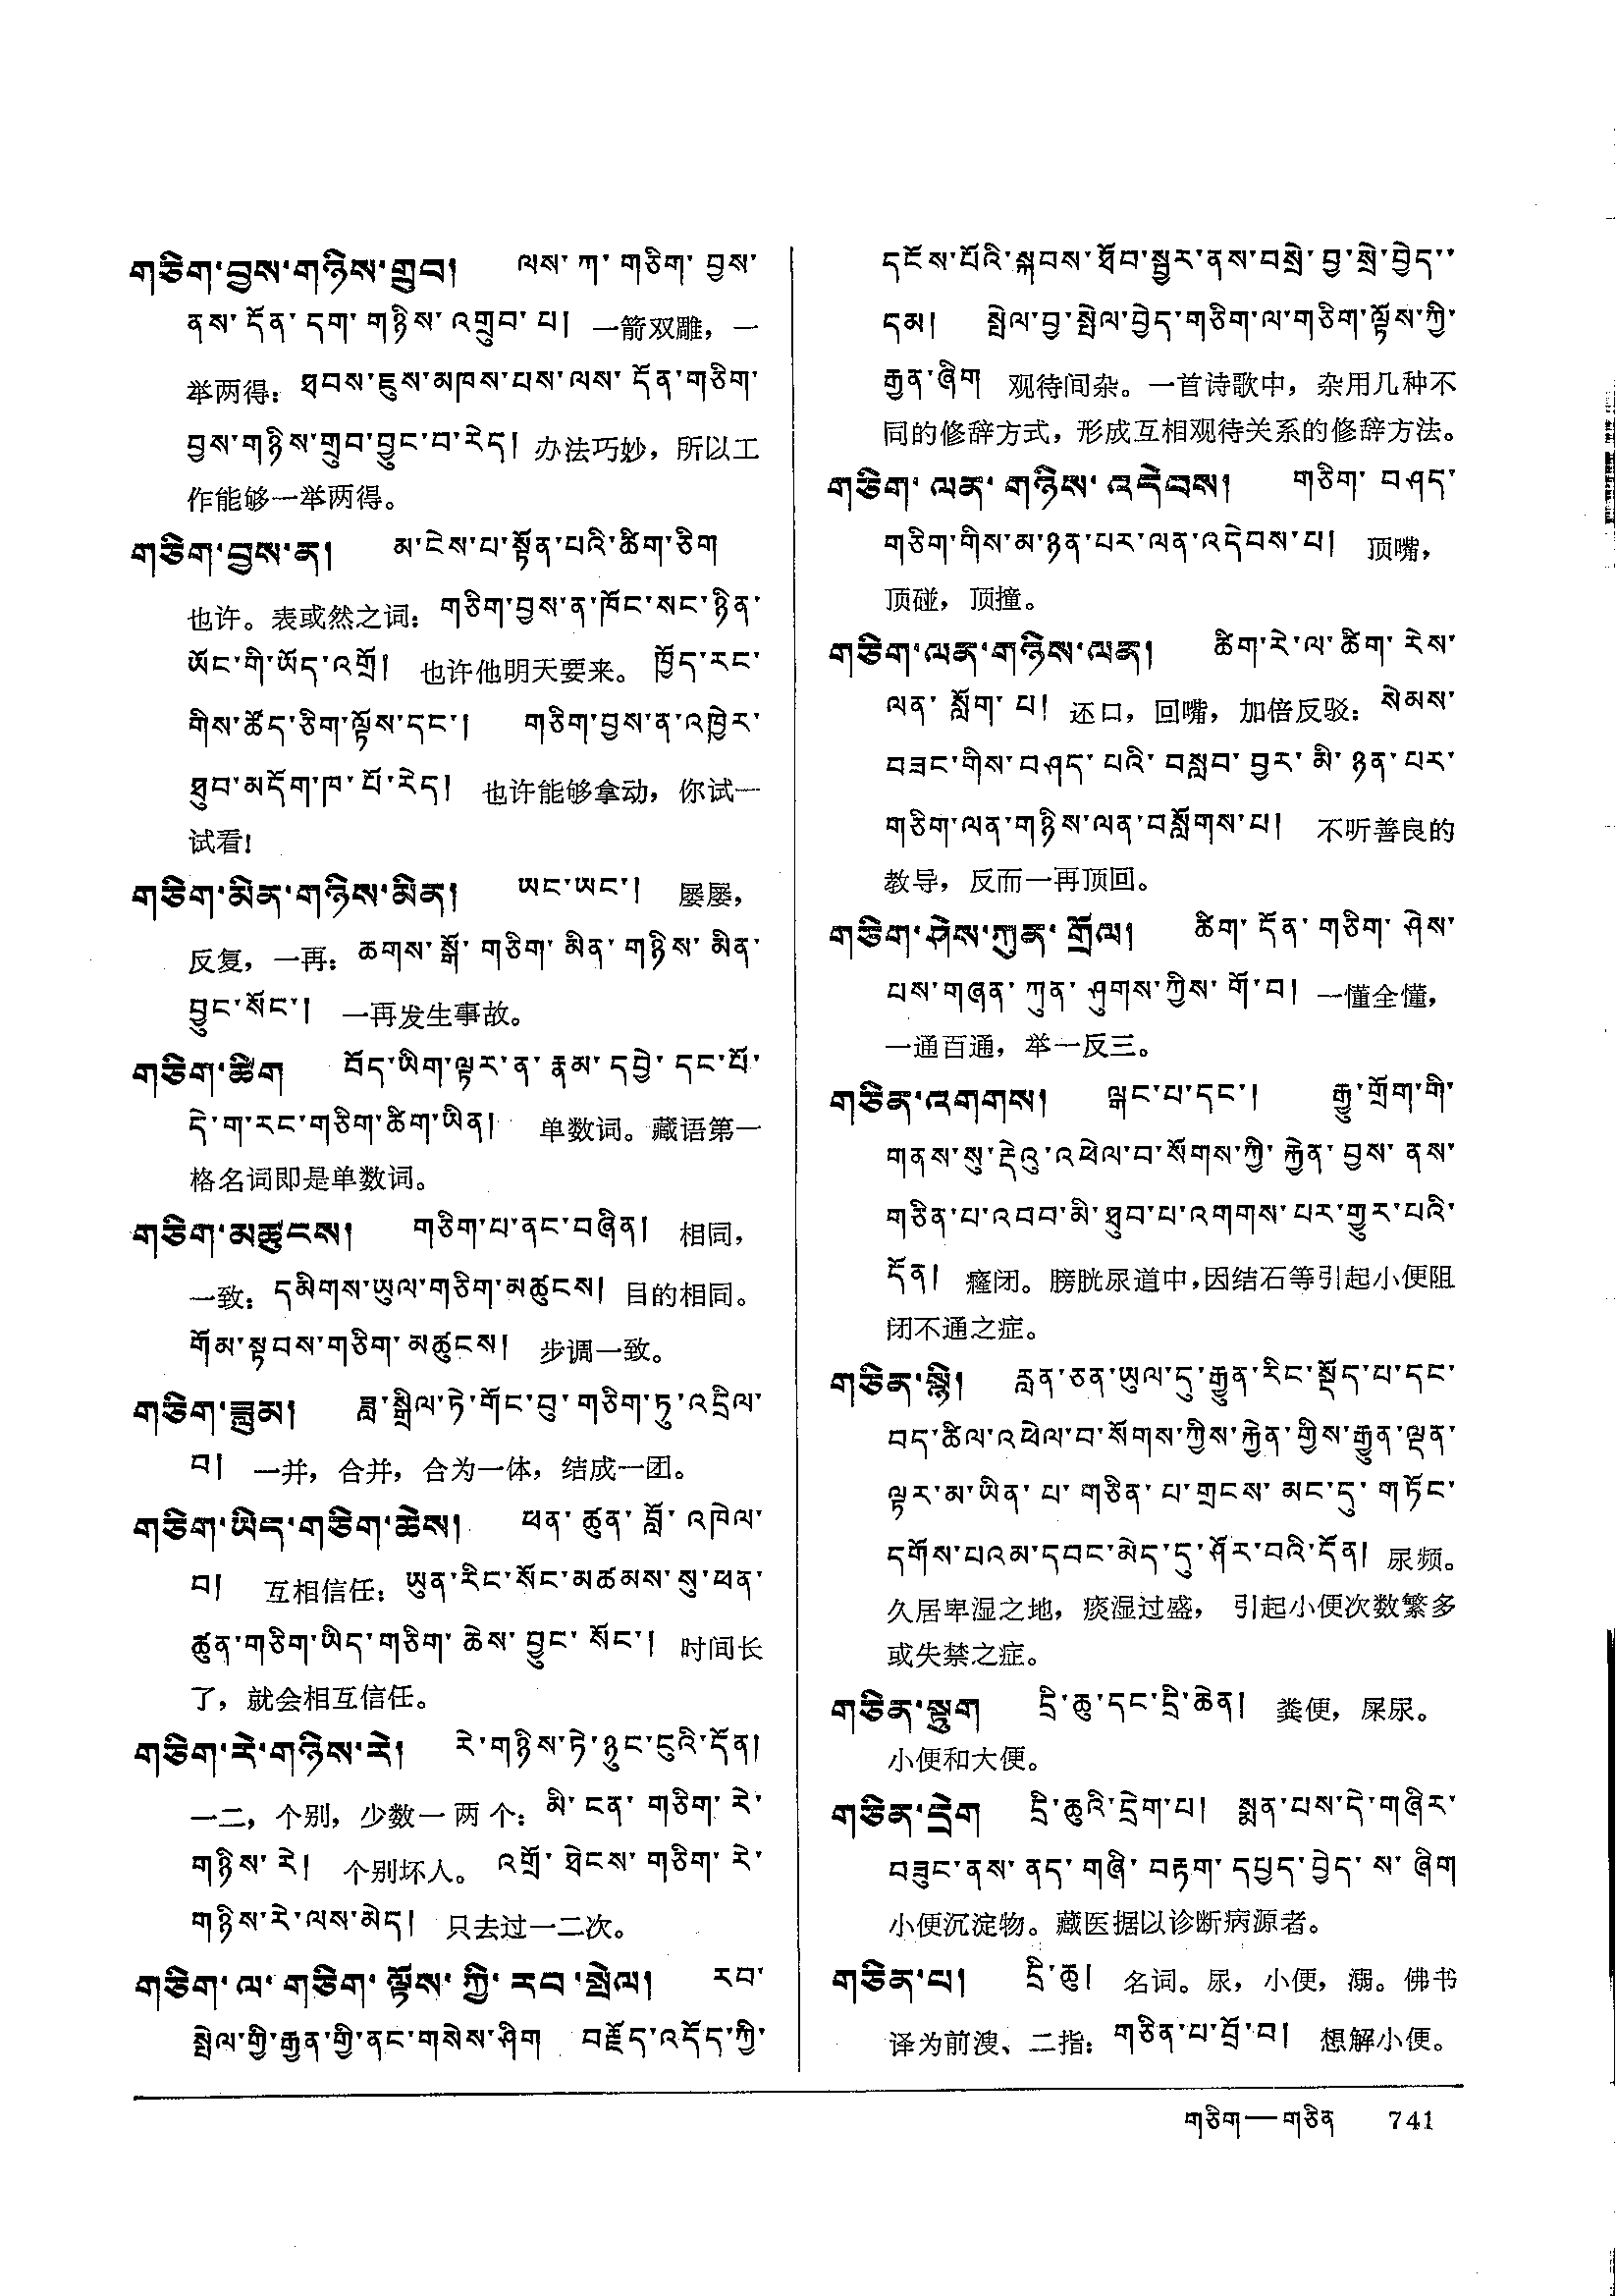 གཅིག་བྱས་གཉིས་གྲུབ། ལས་ཀ་གཅིག་བྱས་
ནས་དོན་དག་གཉིས་འགྲུབ་པ། 一箭双雕，一
举两得：ཐབས་ཇུས་མཁས་པས་ལས་དོན་གཅིག་
བྱས་གཉིས་གྲུབ་བྱུང་བ་རེད། 办法巧妙，所以工
作能够一举两得。
གཅིག་བྱས་ན། མ་ངེས་པ་སྟོན་པའི་ཚིག་ཅིག
也许。表或然之词：གཅིག་བྱས་ན་ཁོང་སང་ཉིན་
ཡོང་གི་ཡོད་འགྲོ། 也许他明天要来。ཁྱོད་རང་
གིས་ཚོད་ཅིག་ལྟོས་དང་། གཅིག་བྱས་ན་འཁྱེར་
ཐུབ་མདོག་ཁ་པོ་རེད། 也许能够拿动，你试一
试看！
གཅིག་མིན་གཉིས་མིན། ཡང་ཡང་། 屡屡，
反复，一再：ཆགས་སྒོ་གཅིག་མིན་གཉིས་མིན་
བྱུང་སོང་། 一再发生事故。
གཅིག་ཚིག བོད་ཡིག་ལྟར་ན་རྣམ་དབྱེ་དང་པོ་
དེ་ག་རང་གཅིག་ཚིག་ཡིན། 单数词。藏语第一
格名词即是单数词。
གཅིག་མཚུངས། གཅིག་པ་ནང་བཞིན། 相同，
一致：དམིགས་ཡུལ་གཅིག་མཚུངས། 目的相同。
གོམ་སྟབས་གཅིག་མཚུངས། 步调一致。
གཅིག་ཟླུམ། ཟླ་སྒྲིལ་ཏེ་གོང་བུ་གཅིག་ཏུ་འདྲིལ་
བ། 一并，合并，合为一体，结成一团。
གཅིག་ཡིད་གཅིག་ཆེས། ཕན་ཚུན་བློ་འཁེལ་
བ། 互相信任：ཡུན་རིང་སོང་མཚམས་སུ་ཕན་
ཚུན་གཅིག་ཡིད་གཅིག་ཆེས་བྱུང་སོང་། 时间长
了，就会相互信任。
གཅིག་རེ་གཉིས་རེ། རེ་གཉིས་ཏེ་ཉུང་ངུའི་དོན།
一二，个别，少数一两个：མི་ངན་གཅིག་རེ་
གཉིས་རེ། 个别坏人。འགྲོ་ཐེངས་གཅིག་རེ་
གཉིས་རེ་ལས་མེད། 只去过一二次。
གཅིག་ལ་གཅིག་ལྟོས་ཀྱི་རབ་སྤེལ། རབ་
སྤེལ་གྱི་རྒྱན་གྱི་ནང་གསེས་ཤིག བརྗོད་འདོད་ཀྱི་
དངོས་པོའི་སྐབས་ཐོབ་སྦྱར་ནས་བསྲེ་བྱ་སྲེ་བྱེད་
དམ། སྤེལ་བྱ་སྤེལ་བྱེད་གཅིག་ལ་གཅིག་ལྟོས་ཀྱི་
རྒྱན་ཞིག 观待间杂。一首诗歌中，杂用几种不
同的修辞方式，形成互相观待关系的修辞方法。
གཅིག་ལན་གཉིས་འདེབས། གཅིག་བཤད་
གཅིག་གིས་མ་ཉན་པར་ལན་འདེབས་པ། 顶嘴，
顶碰，顶撞。
གཅིག་ལན་གཉིས་ལན། ཚིག་རེ་ལ་ཚིག་རེས་
ལན་སློག་པ། 还口，回嘴，加倍反驳：སེམས་
བཟང་གིས་བཤད་པའི་བསླབ་བྱར་མི་ཉན་པར་
གཅིག་ལན་གཉིས་ལན་བསློགས་པ། 不听善良的
教导，反而一再顶回。
གཅིག་ཤེས་ཀུན་གྲོལ། ཚིག་དོན་གཅིག་ཤེས་
པས་གཞན་ཀུན་ཤུགས་ཀྱིས་གོ་བ། 一懂全懂，
一通百通，举一反三。
གཅིན་འགགས། ལྒང་པ་དང་། རྒྱུ་གྲོག་གི་
གནས་སུ་རྡེའུ་འཕེལ་བ་སོགས་ཀྱི་རྐྱེན་བྱས་ནས་
གཅིན་པ་འབབ་མི་ཐུབ་པ་འགགས་པར་གྱུར་པའི་
དོན། 癃闭。膀胱尿道中，因结石等引起小便阻
闭不通之症。
གཅིན་སྙི། རླན་ཅན་ཡུལ་དུ་རྒྱུན་རིང་སྡོད་པ་དང་
བད་ཚིལ་འཕེལ་བ་སོགས་ཀྱིས་རྐྱེན་གྱིས་རྒྱུན་ལྡན་
ལྟར་མ་ཡིན་པ་གཅིན་པ་གྲངས་མང་དུ་གཏོང་
དགོས་པའམ་དབང་མེད་དུ་ཤོར་བའི་དོན། 尿频。
久居卑湿之地，痰湿过盛，引起小便次数繁多
或失禁之症。
གཅིན་སྟུག དྲི་ཆུ་དང་དྲི་ཆེན། 粪便，屎尿。
小便和大便。
གཅིན་དྲེག དྲི་ཆུའི་དྲེག་པ། སྨན་པས་དེ་གཞིར་
བཟུང་ནས་ནད་གཞི་བརྟག་དཔྱད་བྱེད་ས་ཞིག
小便沉淀物。藏医据以诊断病源者。
གཅིན་པ། དྲི་ཆུ། 名词。尿，小便，溺。佛书
译为前溲、二指：གཅིན་པ་བྲོ་བ། 想解小便。
གཅིག—གཅིན 741